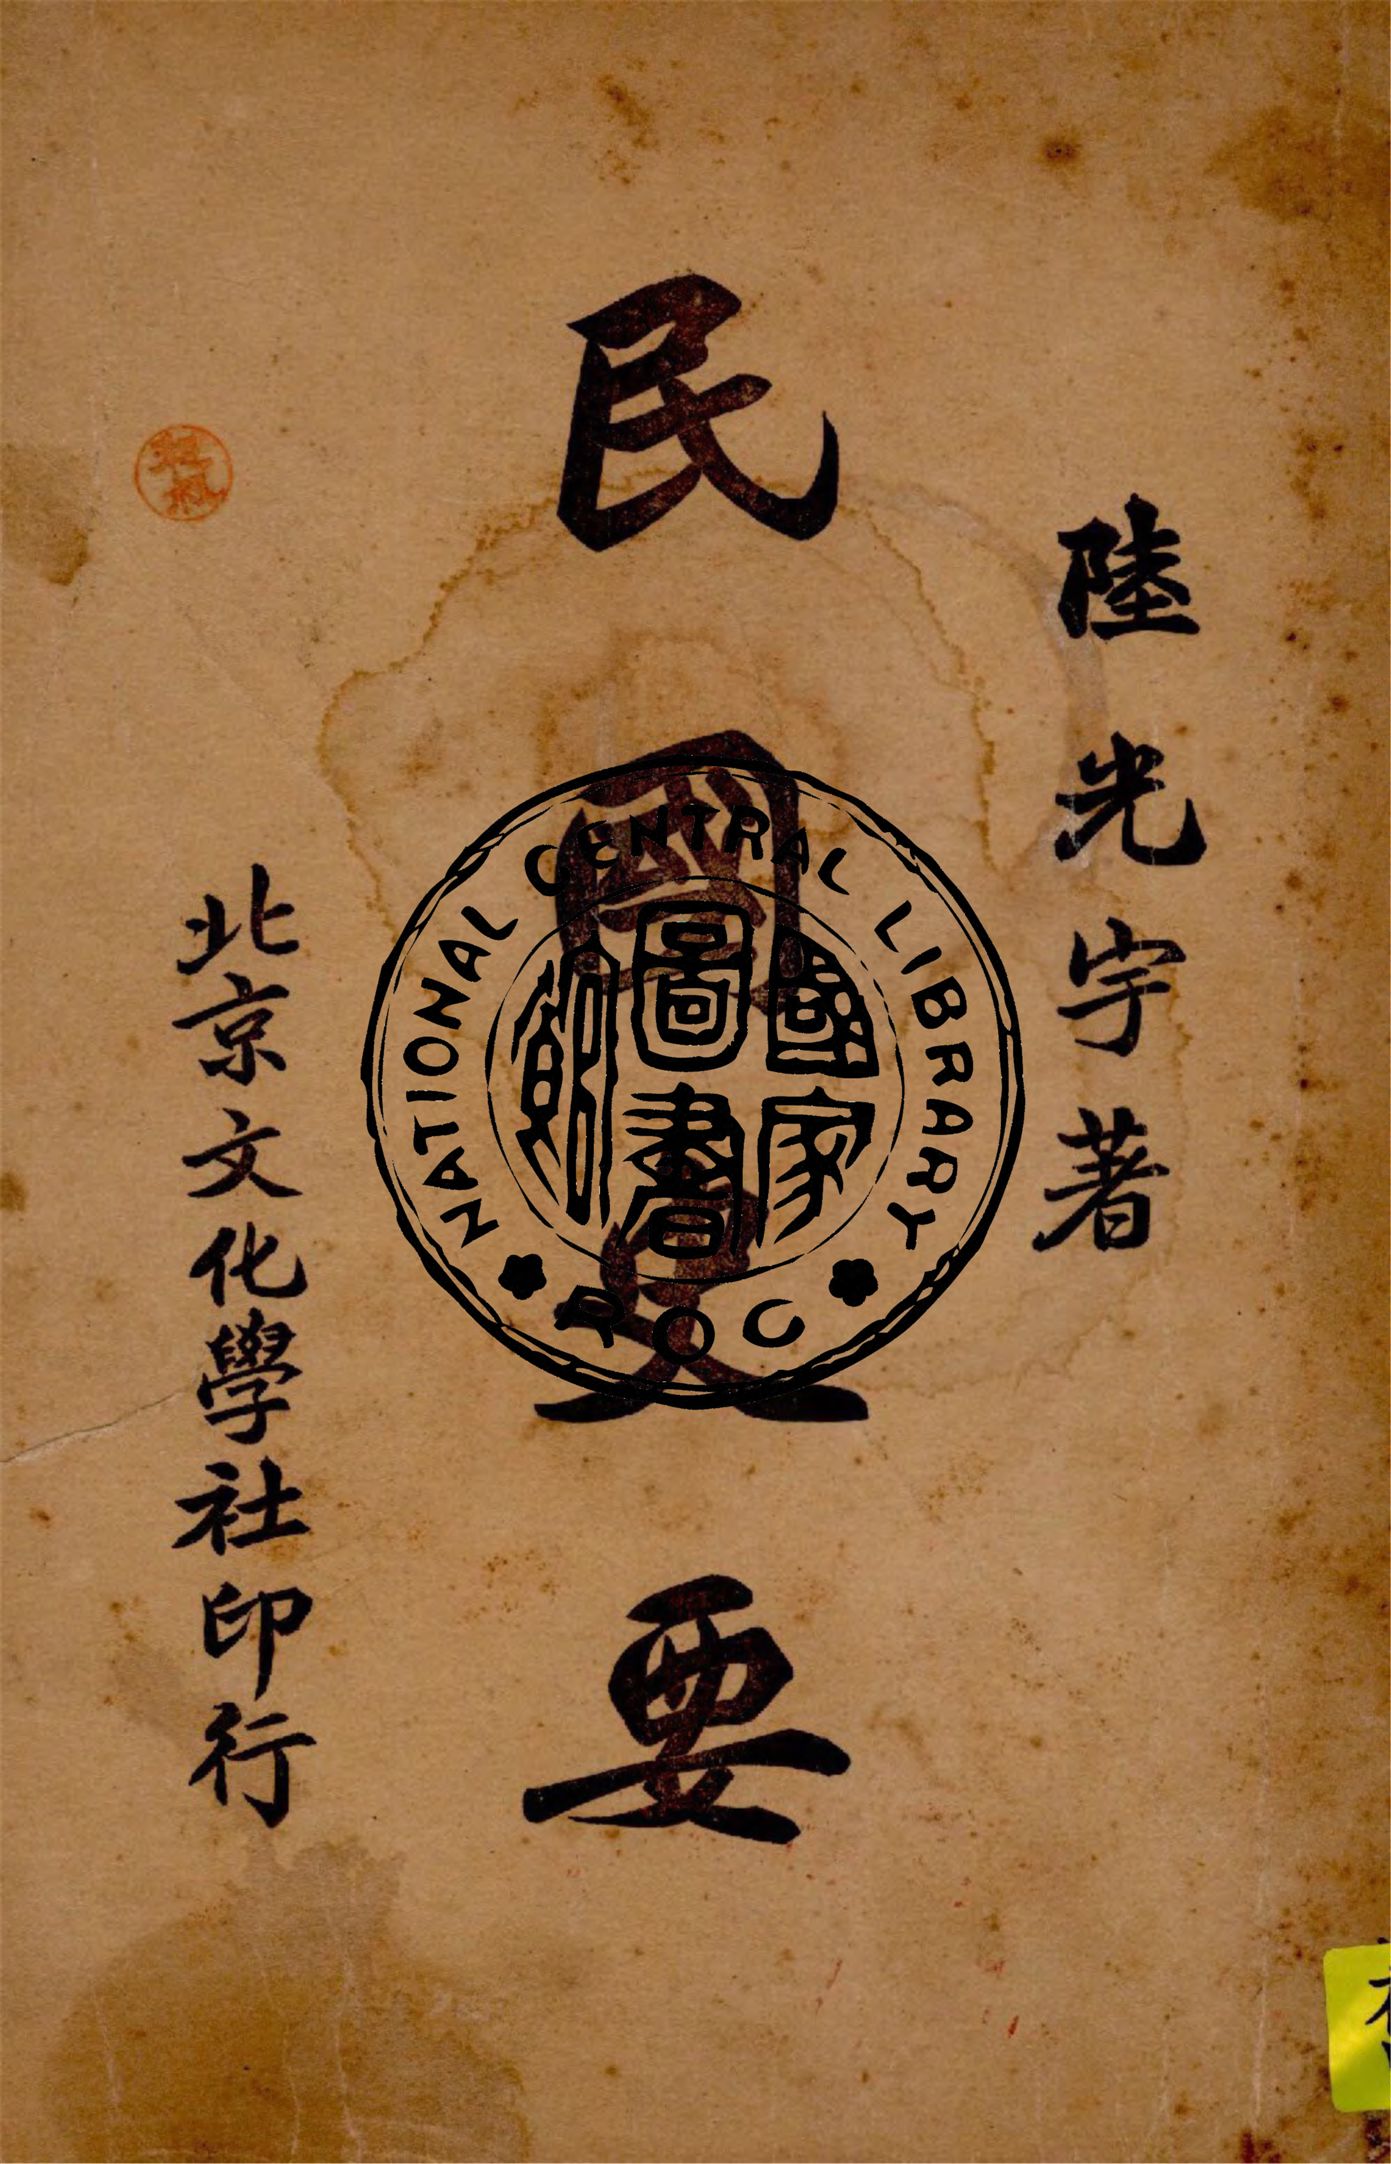 陸光宇著
民國史要
北京文化學社印行
NATIONAL CENTRAL LIBRARY
國家圖書館
ROC